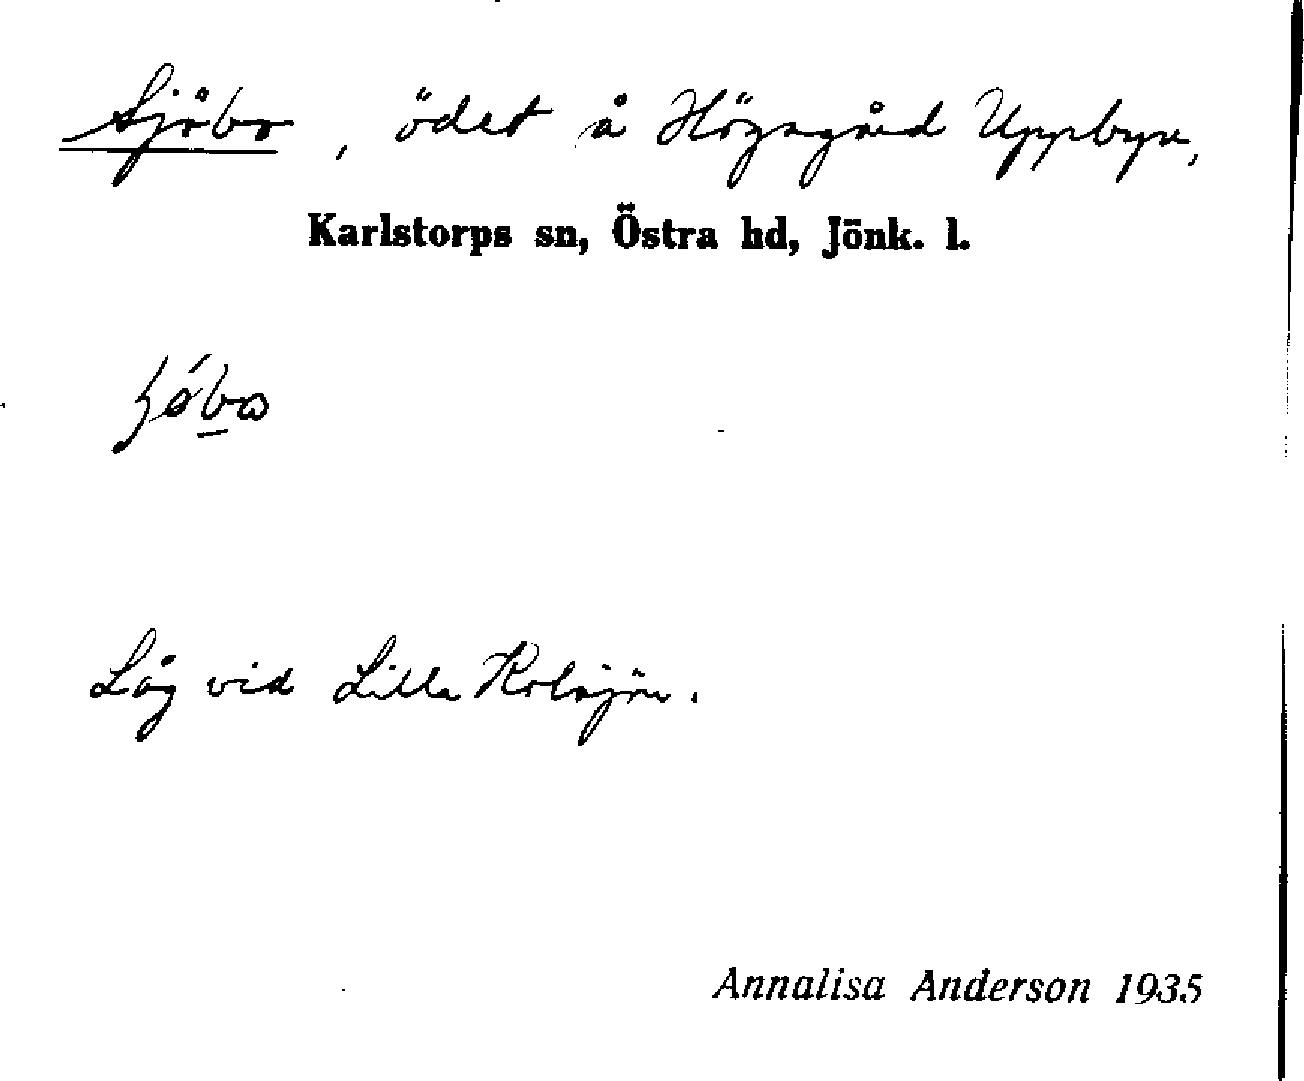 Sjöbo, ödet å Högagård Uppbyn,
Karlstorps sn, Östra hd, Jönk. l.
Låg vid Lilla Kolsjön.
Annalisa Anderson 1935